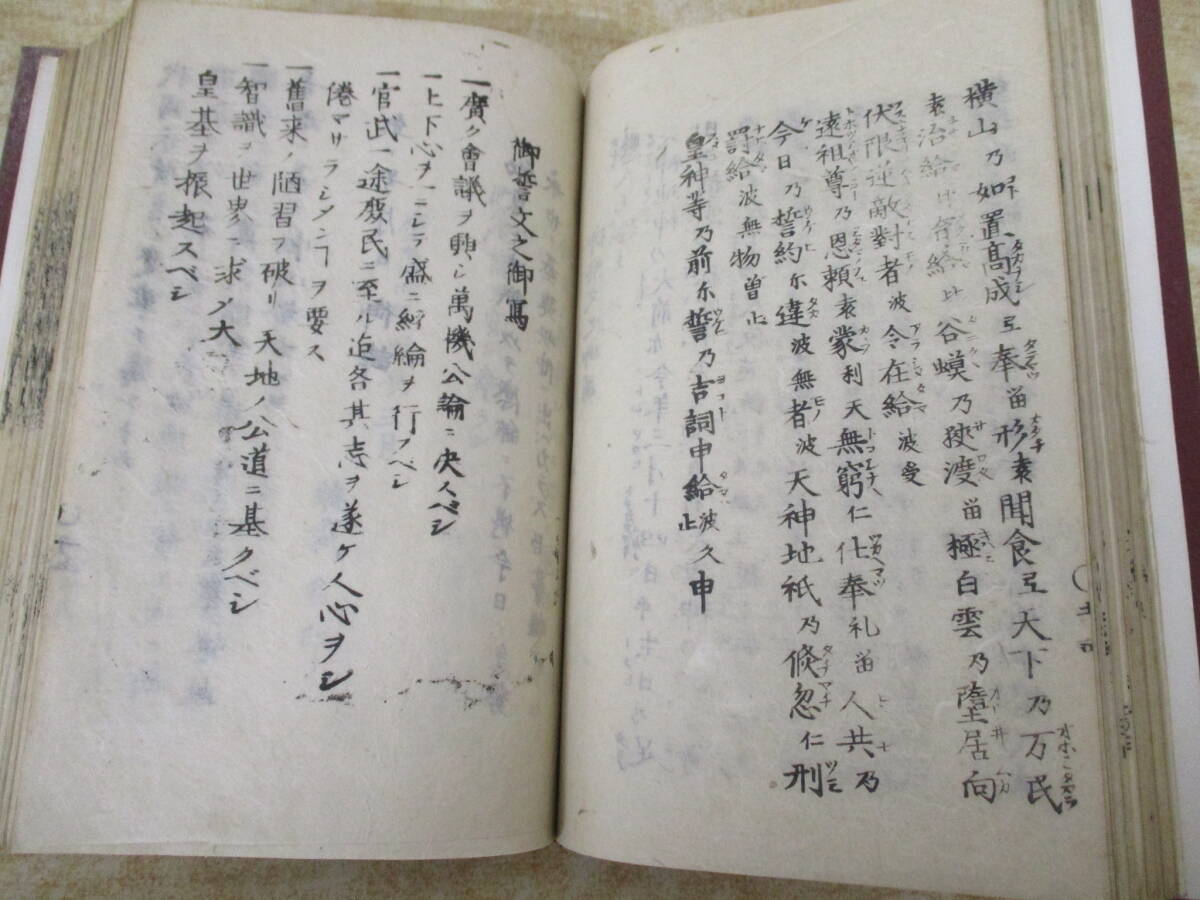 横山乃如置高成弖奉留形袁聞食弖天下乃万民
袁治給比育給比谷蟆乃狭渡留極白雲乃墮居向
伏限逆敵對者波令在給波受
遠祖尊乃恩頼袁蒙利天無窮仁仕奉礼留人共乃
今日乃誓約尓違波無者波天神地祇乃倏忽仁刑
罰給波無物曽止
皇神等乃前尓誓乃吉詞申給波久申止
御誓文之御寫
一廣ク會議ヲ興シ萬機公論ニ决スベシ
一上下心ヲ一ニシテ盛ニ経綸ヲ行フベシ
一官武一途庶民ニ至ル迄各其志ヲ遂ケ人心ヲシテ
倦マサラシメンヿヲ要ス
一舊来ノ陋習ヲ破リ天地ノ公道ニ基クベシ
一智識ヲ世界ニ求メ大ニ
皇基ヲ振起スベシ